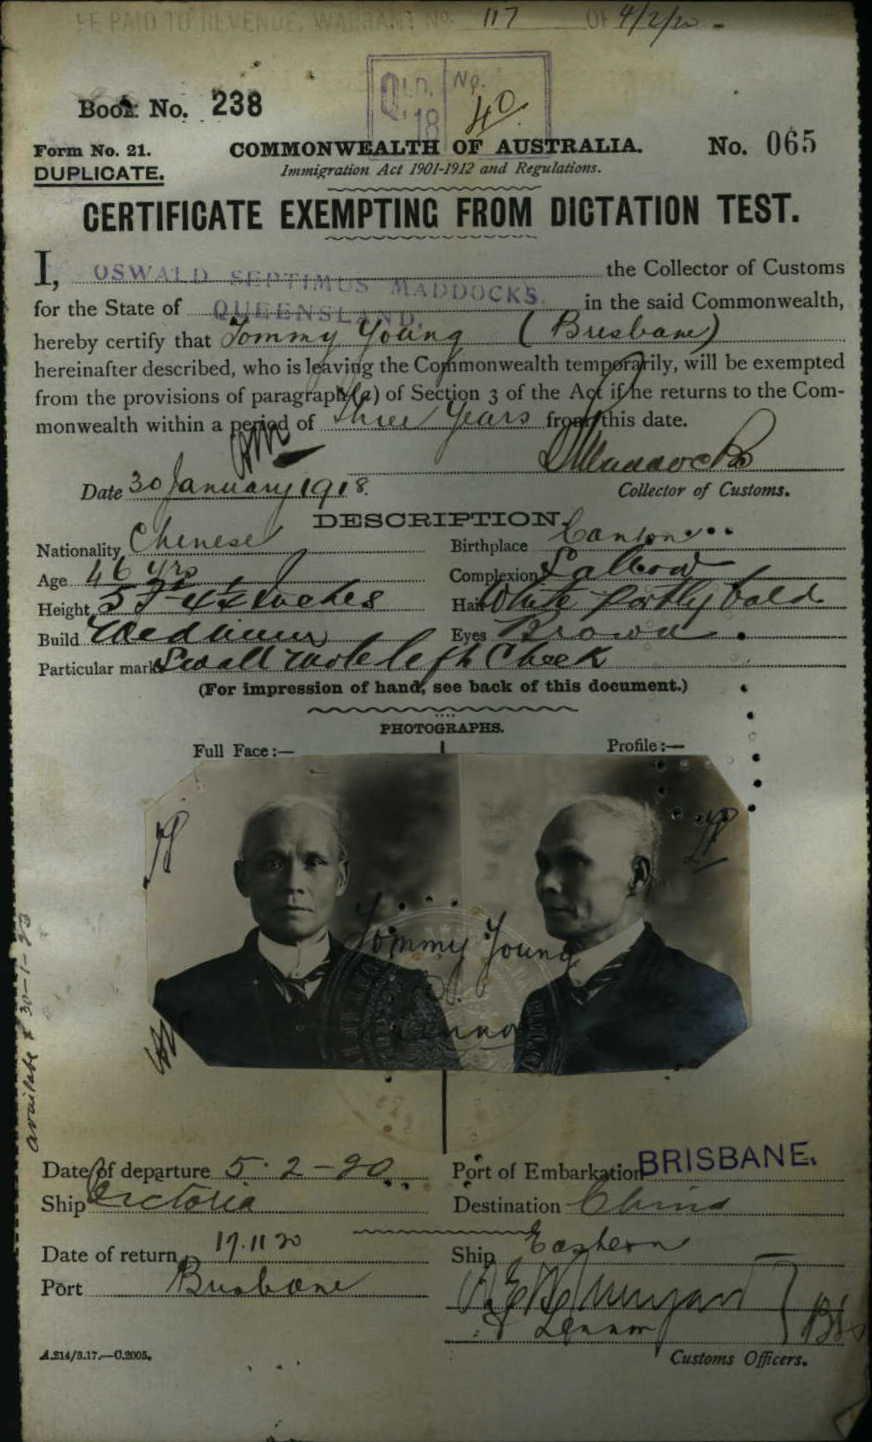 FEE PAID TO REVENUE, WARRANT No. 117 OF 4/2/20 -
QLD. No.
'18 40
Book No. 238
Form No. 21. COMMONWEALTH OF AUSTRALIA. No. 065
DUPLICATE. Immigration Act 1901-1912 and Regulations.
CERTIFICATE EXEMPTING FROM DICTATION TEST.
I, OSWALD SEPTIMUS MADDOCKS. the Collector of Customs
for the State of QUEENSLAND. in the said Commonwealth,
hereby certify that Tommy Young (Brisbane)
hereinafter described, who is leaving the Commonwealth temporarily, will be exempted
from the provisions of paragraph (a) of Section 3 of the Act if he returns to the Com-
monwealth within a period of Three Years from this date.
OSMaddocks
Date 30 January 1918. Collector of Customs.
DESCRIPTION.
Nationality Chinese Birthplace Canton
Age 46 yrs Complexion Sallow
Height 5 Ft 4½ Inches Hair White partly bald
Build Medium Eyes Brown.
Particular marks Small mole left Cheek
(For impression of hand, see back of this document.)
PHOTOGRAPHS.
Full Face:— Profile:—
Tommy Young
Lennon
available to 30-1-23
Date of departure 5.2-20 Port of Embarkation BRISBANE.
Ship Victoria Destination China
Date of return 17.11 20 Ship Eastern
Port Brisbane
Lennon
A.214/3.17.—C.2005. Customs Officers.